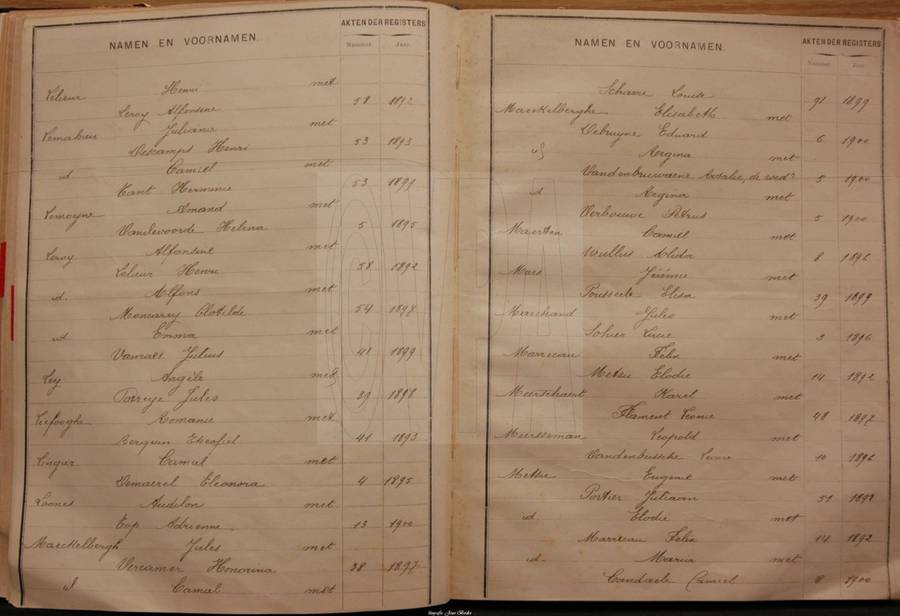 NAMEN EN VOORNAMEN.
AKTEN DER REGISTERS
Nummer. Jaar.
Lelieur Henri met
Leroy Alfonsine 58 1892
Lemahieu Juliana met
Deskamps Henri 53 1893
id Camiel met
Tant Herminie 53 1899
Lemoyne Amand met
Vandevoorde Helena 5 1895
Leroy Alfonsine met
Lelieur Henri 58 1892
id. Alfons met
Moncarey Clotilde 54 1897
id Emma met
Julius 41 1899
Ley Angèle met
Jules 39 1898
Liefooghe Romanie met
Berquin 41 1893
Lingier Camiel met
Demaerel Eleonora 4 1895
Loones Audilon met
Top Adrienne 13 1900
Maeckelbergh Jules met
Vercamer Honorina 28 1897
id Camiel met
NAMEN EN VOORNAMEN.
AKTEN DER REGISTERS
Nummer. Jaar.
Louise 91 1899
Maeckelberghe Elisabeth met
Debruyne Eduard 6 1900
id Regina met
Vandenbruwaene de wedr 5 1900
id Regina met
Verbouwe Petrus 5 1900
Maerten Camiel met
Wullus Alida 8 1896
Maes Jérémie met
Pousseele Elisa 39 1899
Marchand Jules met
Sohier Lucie 3 1896
Marreeuw Felix met
Metsu Elodie 14 1892
Meerschaert Karel met
Flament Leonie 48 1897
Meersseman Leopold met
Vandenbussche Leonie 10 1892
Metsu Eugenie met
Portier Juliaan 51 1898
id. Elodie met
Marreeuw Felix 14 1892
id. Maria met
Vandaele Camiel 8 1900